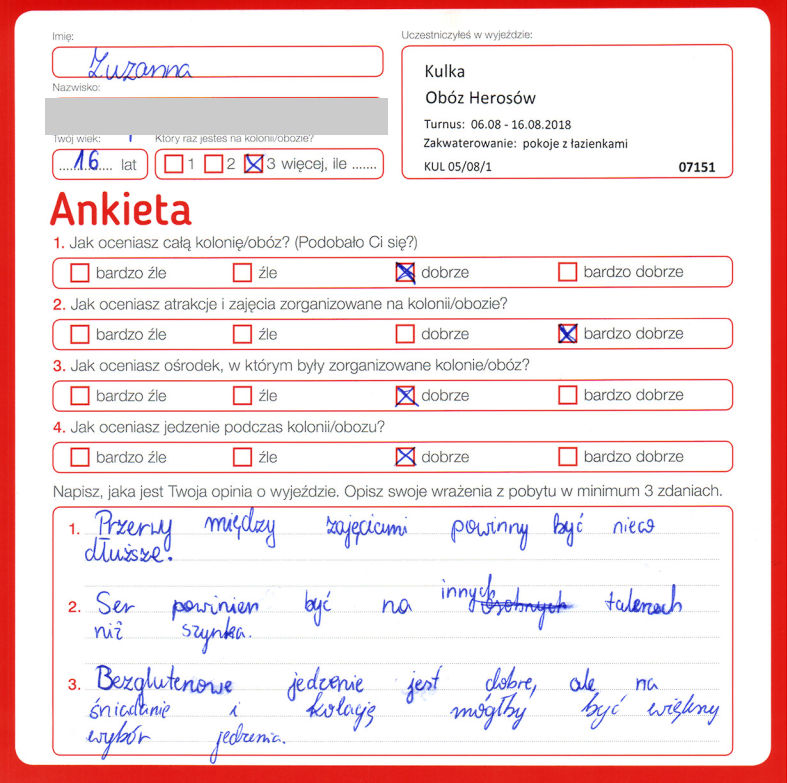 Imię:
Zuzanna
Nazwisko:
Twój wiek:
16 lat
Który raz jesteś na kolonii/obozie?
1 2 3 więcej, ile .......
Uczestniczyłeś w wyjeździe:
Kulka
Obóz Herosów
Turnus: 06.08 - 16.08.2018
Zakwaterowanie: pokoje z łazienkami
KUL 05/08/1 07151
Ankieta
1. Jak oceniasz całą kolonię/obóz? (Podobało Ci się?)
bardzo źle źle dobrze bardzo dobrze
2. Jak oceniasz atrakcje i zajęcia zorganizowane na kolonii/obozie?
bardzo źle źle dobrze bardzo dobrze
3. Jak oceniasz ośrodek, w którym były zorganizowane kolonie/obóz?
bardzo źle źle dobrze bardzo dobrze
4. Jak oceniasz jedzenie podczas kolonii/obozu?
bardzo źle źle dobrze bardzo dobrze
Napisz, jaka jest Twoja opinia o wyjeździe. Opisz swoje wrażenia z pobytu w minimum 3 zdaniach.
1. Przerwy między zajęciami powinny być nieco
dłuższe.
2. Ser powinien być na innych talerzach
niż szynka.
3. Bezglutenowe jedzenie jest dobre, ale na
śniadanie i kolację mógłby być większy
wybór jedzenia.